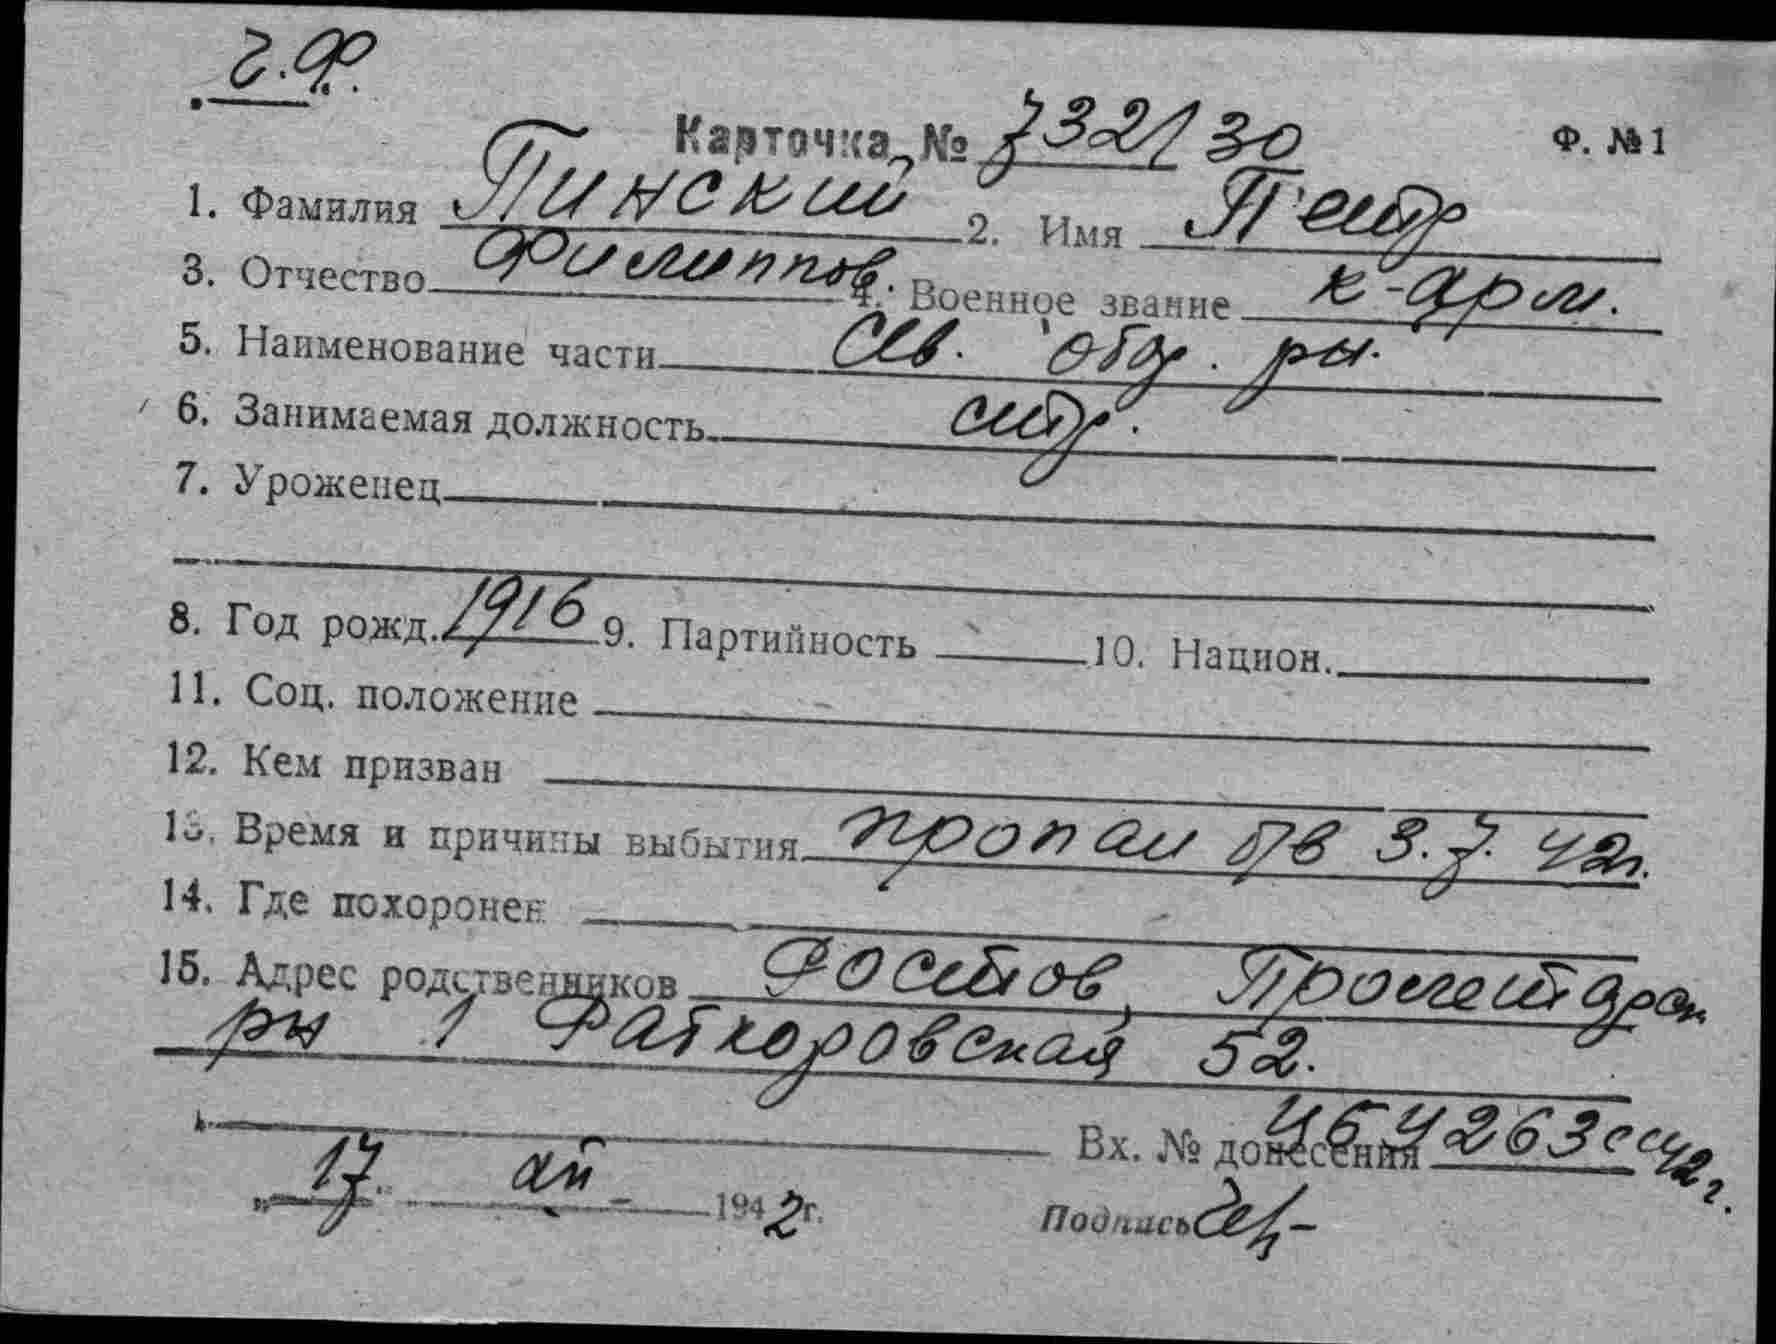 Ч.Ф.
Карточка № 732/30 Ф. №1
1. Фамилия Пинский 2. Имя Петр
3. Отчество Филиппов. 4. Военное звание к-арм.
5. Наименование части Сев. обор. р-н.
6. Занимаемая должность стр.
7. Уроженец
8. Год рожд. 1916 9. Партийность 10. Национ.
11. Соц. положение
12. Кем призван
13. Время и причины выбытия пропал б/в 3.7.42г.
14. Где похоронен
15. Адрес родственников Ростов, Пролетарск.
р-н 1 Рабкоровская 52.
Вх. № донесения 263сс 42г.
„17" 1942г. Подпись